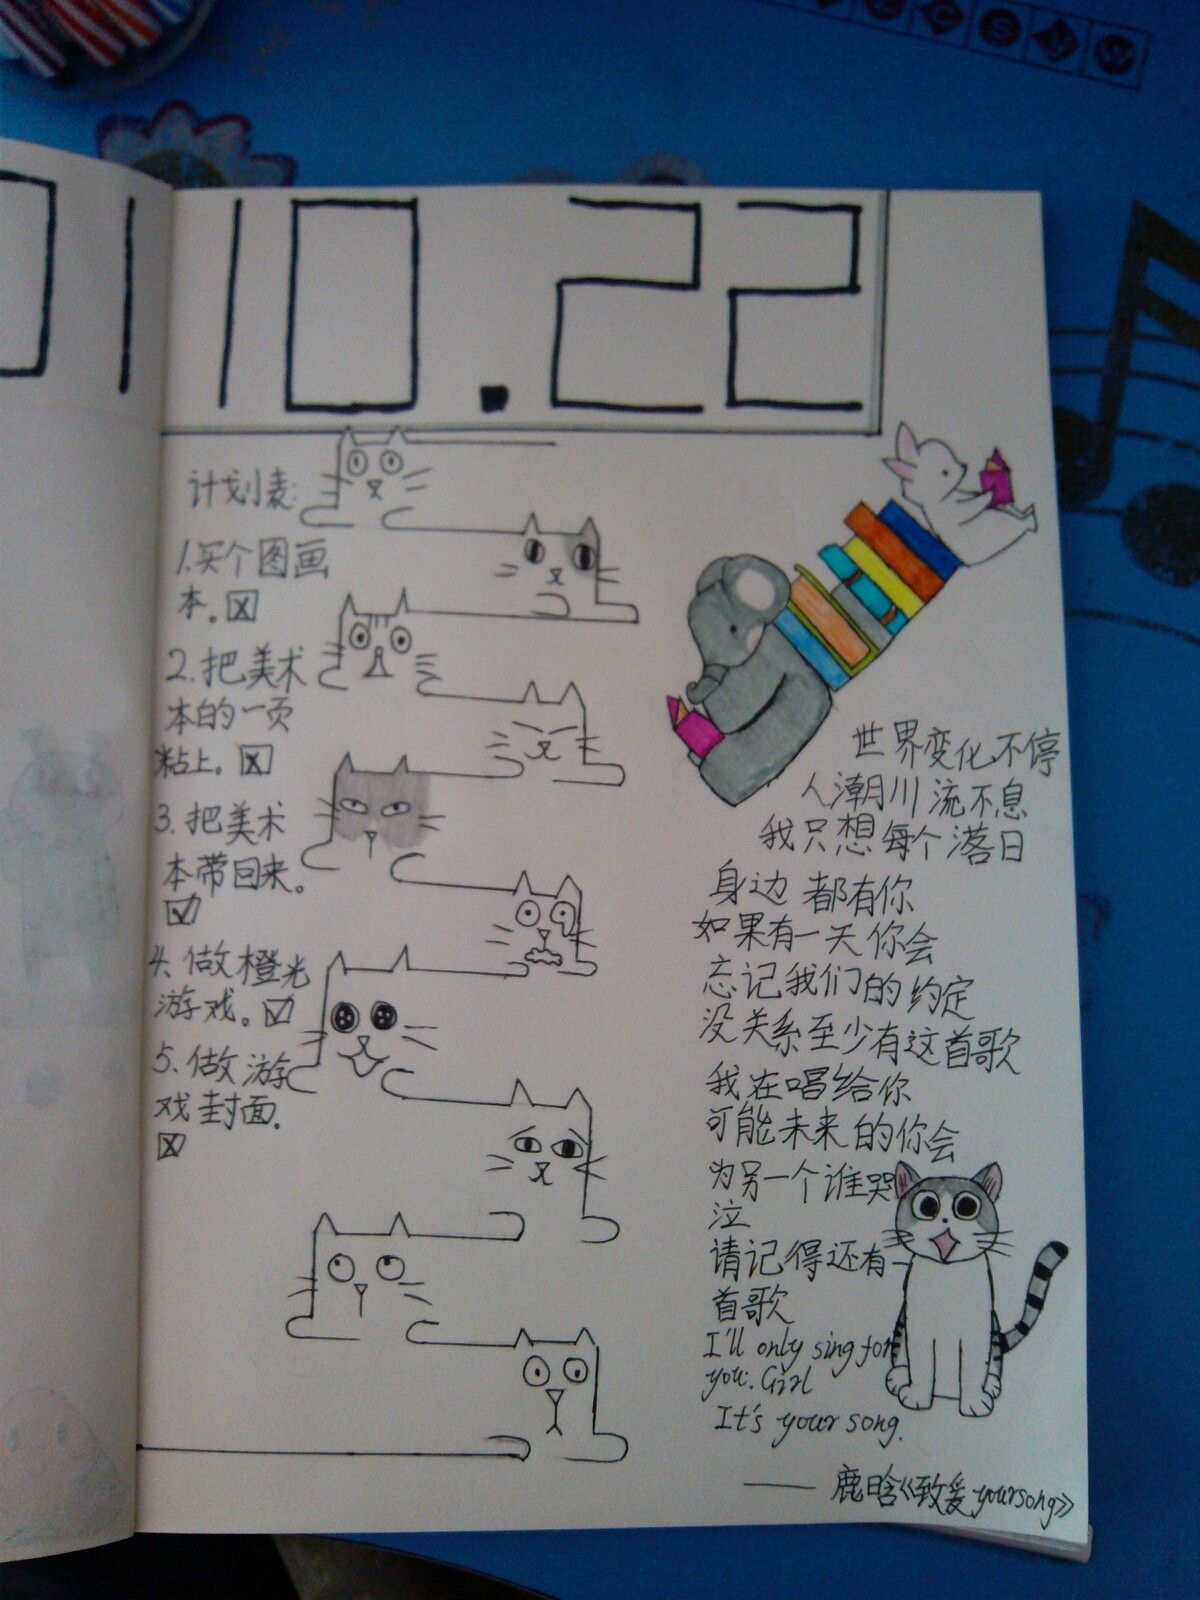 10.22
计划表:
1.买个图画
本。☒
2.把美术
本的一页
粘上。☒
3.把美术
本带回来。
☑
4.做橙光
游戏。☑
5.做游
戏封面.
☒
世界变化不停
人潮川流不息
我只想每个落日
身边都有你
如果有一天你会
忘记我们的约定
没关系至少有这首歌
我在唱给你
可能未来的你会
为另一个谁哭
泣
请记得还有一
首歌
I'll only sing for
you. Girl
It's your song.
——鹿晗《致爱 your song》